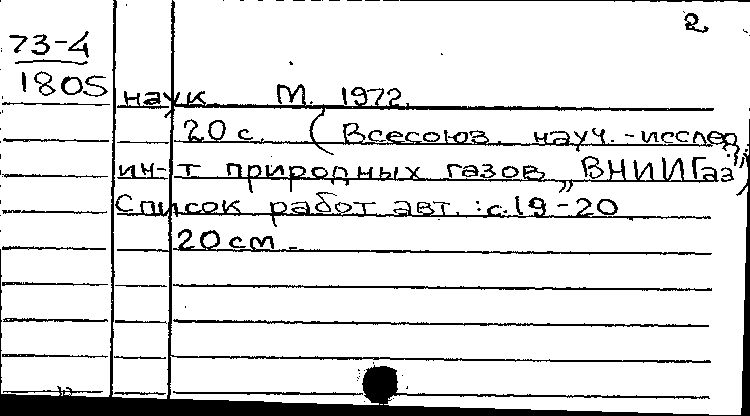 2
73-4
1805
наук М. 1972.
20 с. (Всесоюз. науч.-исслед.
ин-т природных газов „ВНИИГаз")
Список работ авт.: с. 19-20
20 см -